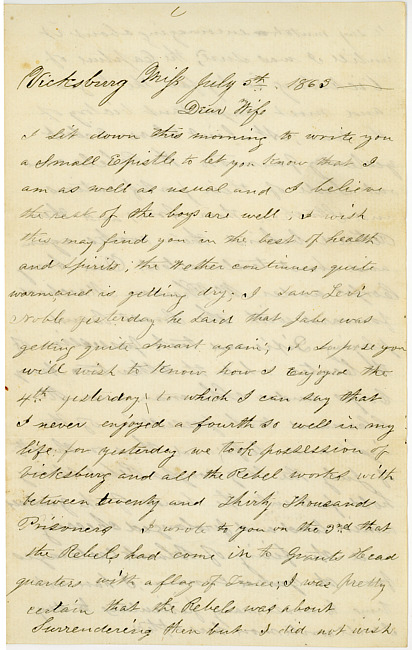 Vicksburg Miss July 5th. 1863
Dear Wife
I Sit down this morning to write you
a Small Epistle to let you Know that I
am as well as usual and I believe
the rest of the boys are well; I wish
this may find you in the best of health
and Spirits; the Wether continues quite
warm and is getting dry; I Saw Levi
Noble yesterday he Said that Jabe was
getting quite Smart again; I Supose you
will wish to Know how I Enjoyed the
4th yesterday; to which I can say that
I never enjoyed a fourth so well in my
life, for yesterday we took possession of
Vicksburg and all the Rebel works with
between twenty and Thirty Thousand
Prisoners I wrote to you on the 3rd that
the Rebels had come in to Grants head
quarters with a flag of Truce; I was pretty
certain that the Rebels was about
Surrendering then but I did not wish